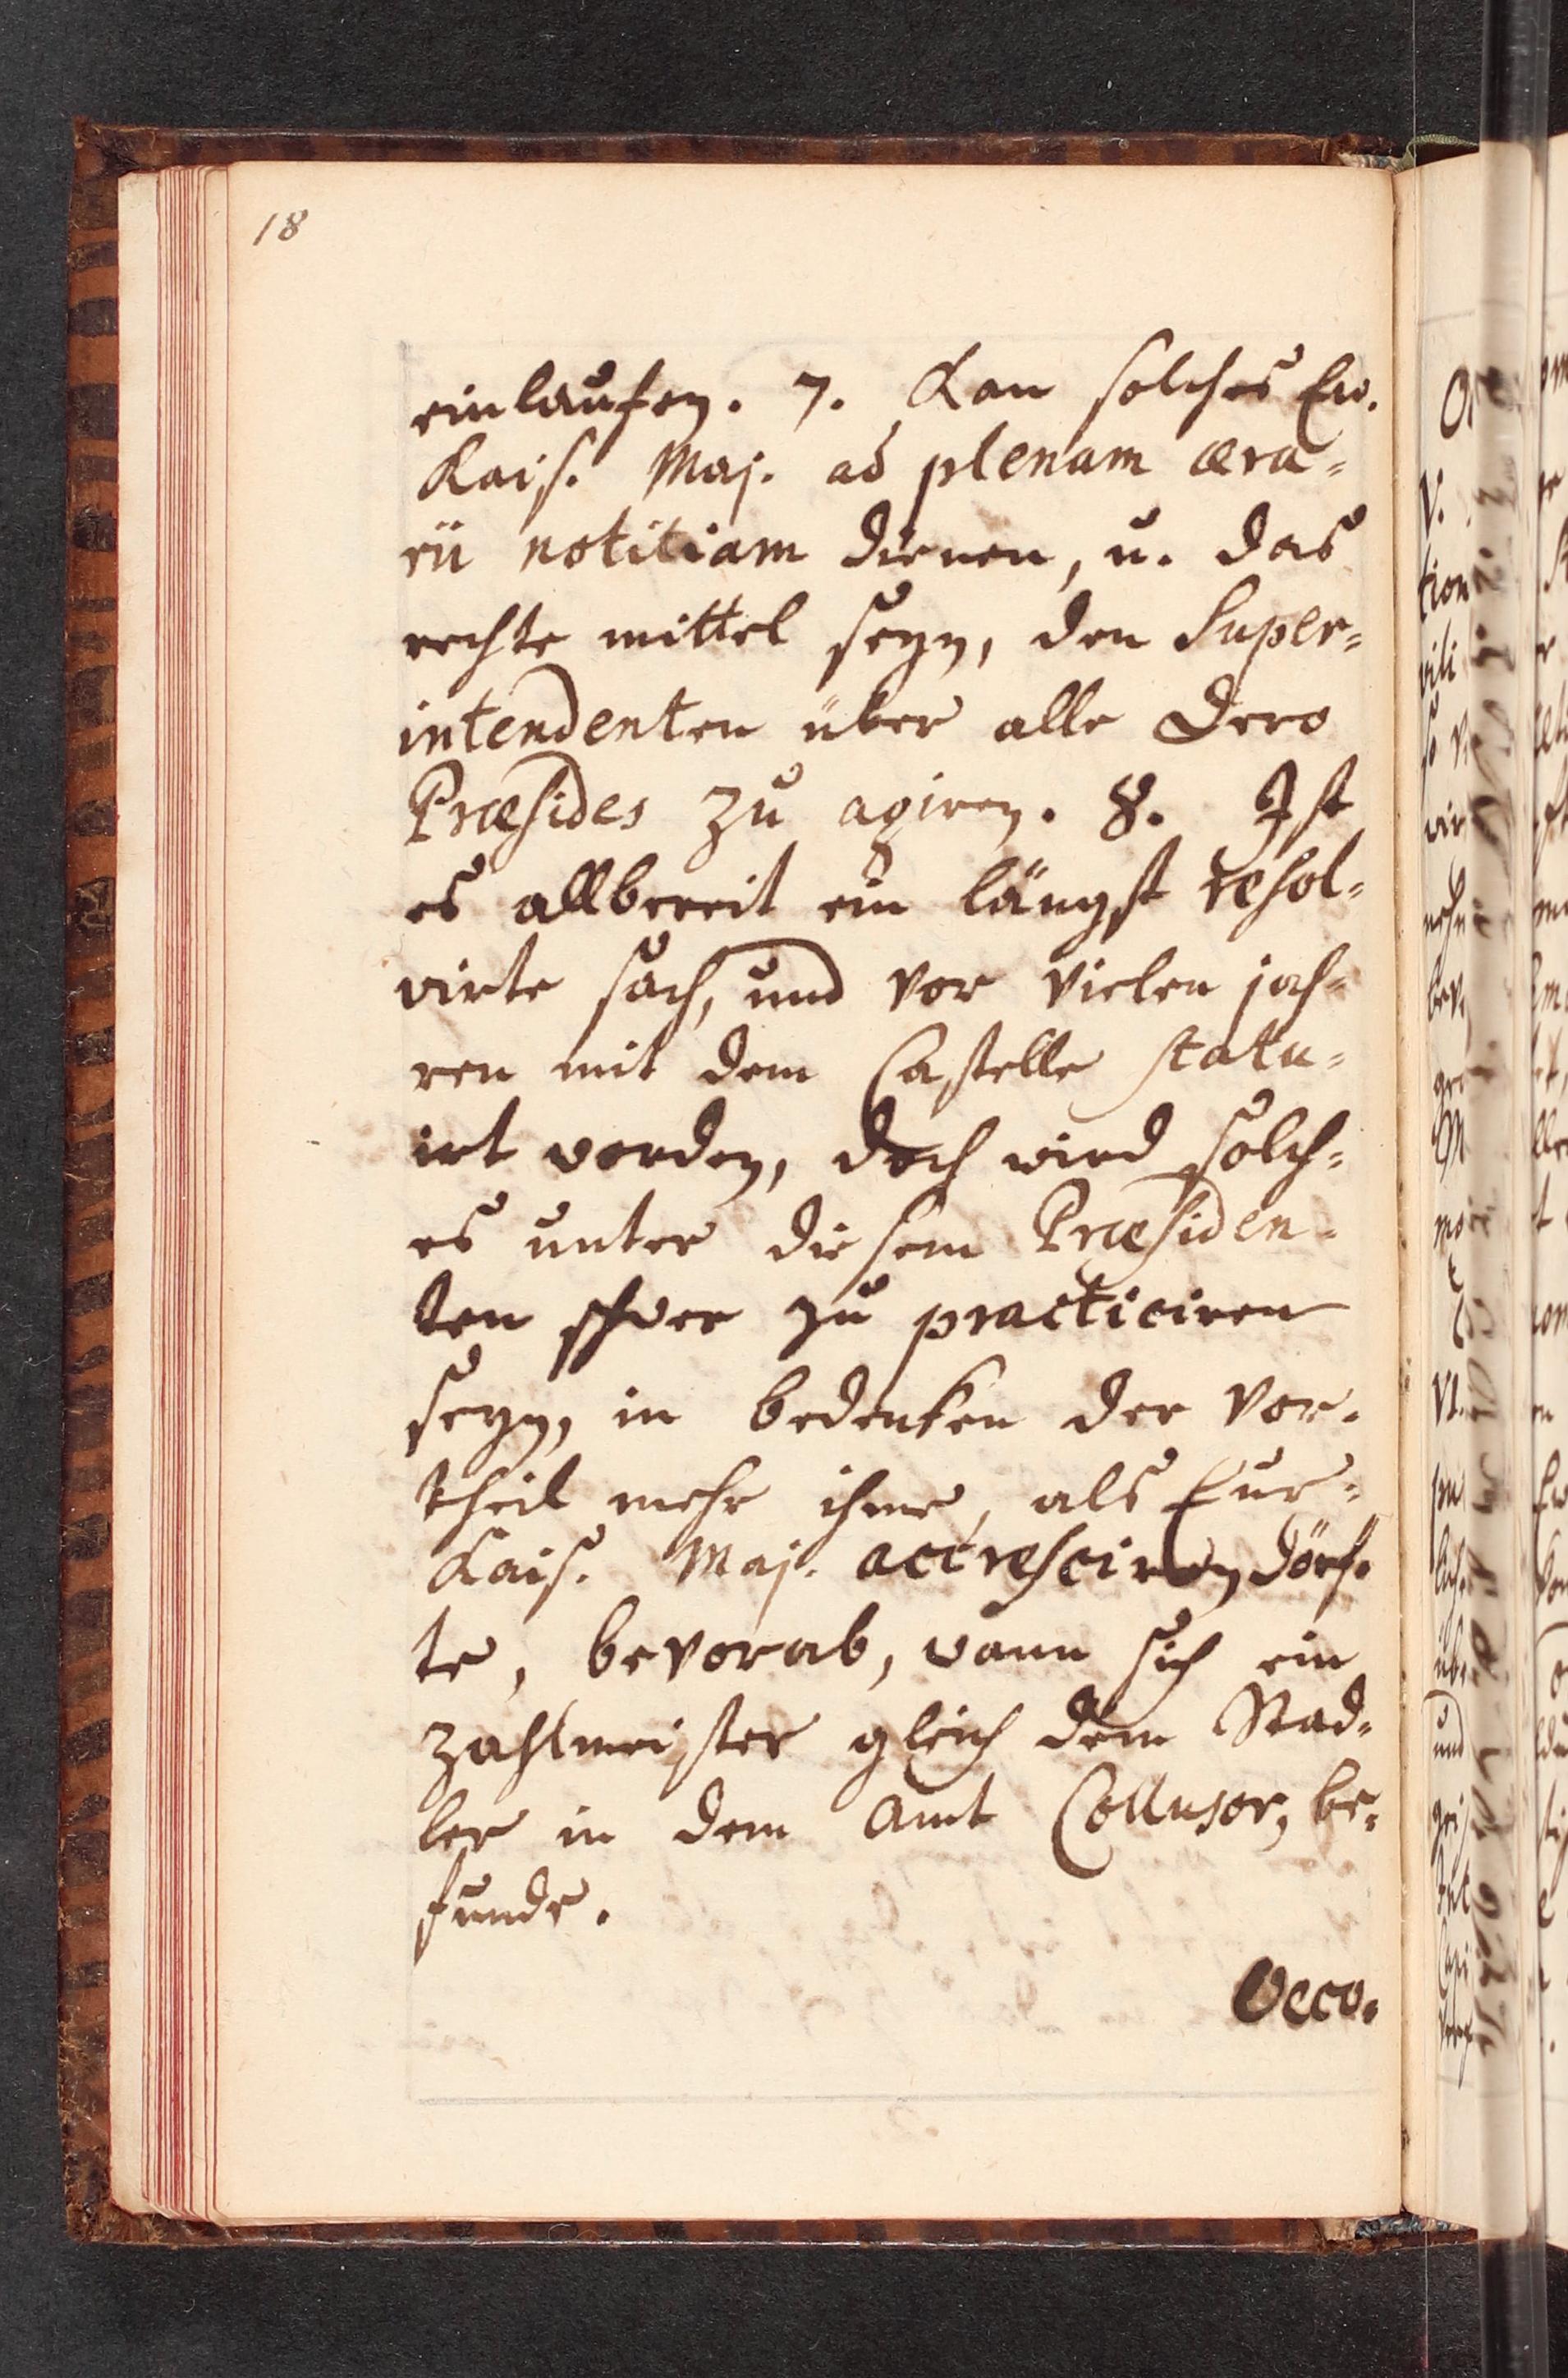 18
einlaufen. 7. Kan solches Ew.
Kais. Maj. ad plenam æra=
rii notitiam dienen, u. das
rechte mittel seyn, den Super=
intendenten über alle Dero
Præsides zu agiren. 8. Ist
es allbereit ein längst resol=
virte sach, und vor vielen jah=
ren mit dem Castelle statu=
irt worden, doch wird solch=
es unter diesem Præsiden=
ten schwer zu practiciren
seyn, in bedenken der vor=
theil mehr ihme, als Eur=
Kais. Maj. accresciren dörf=
te, bevorab, wann sich ein
zahlmeister gleich dem Stad=
ler in dem Amt Collusor, be=
funde.
Oeco=